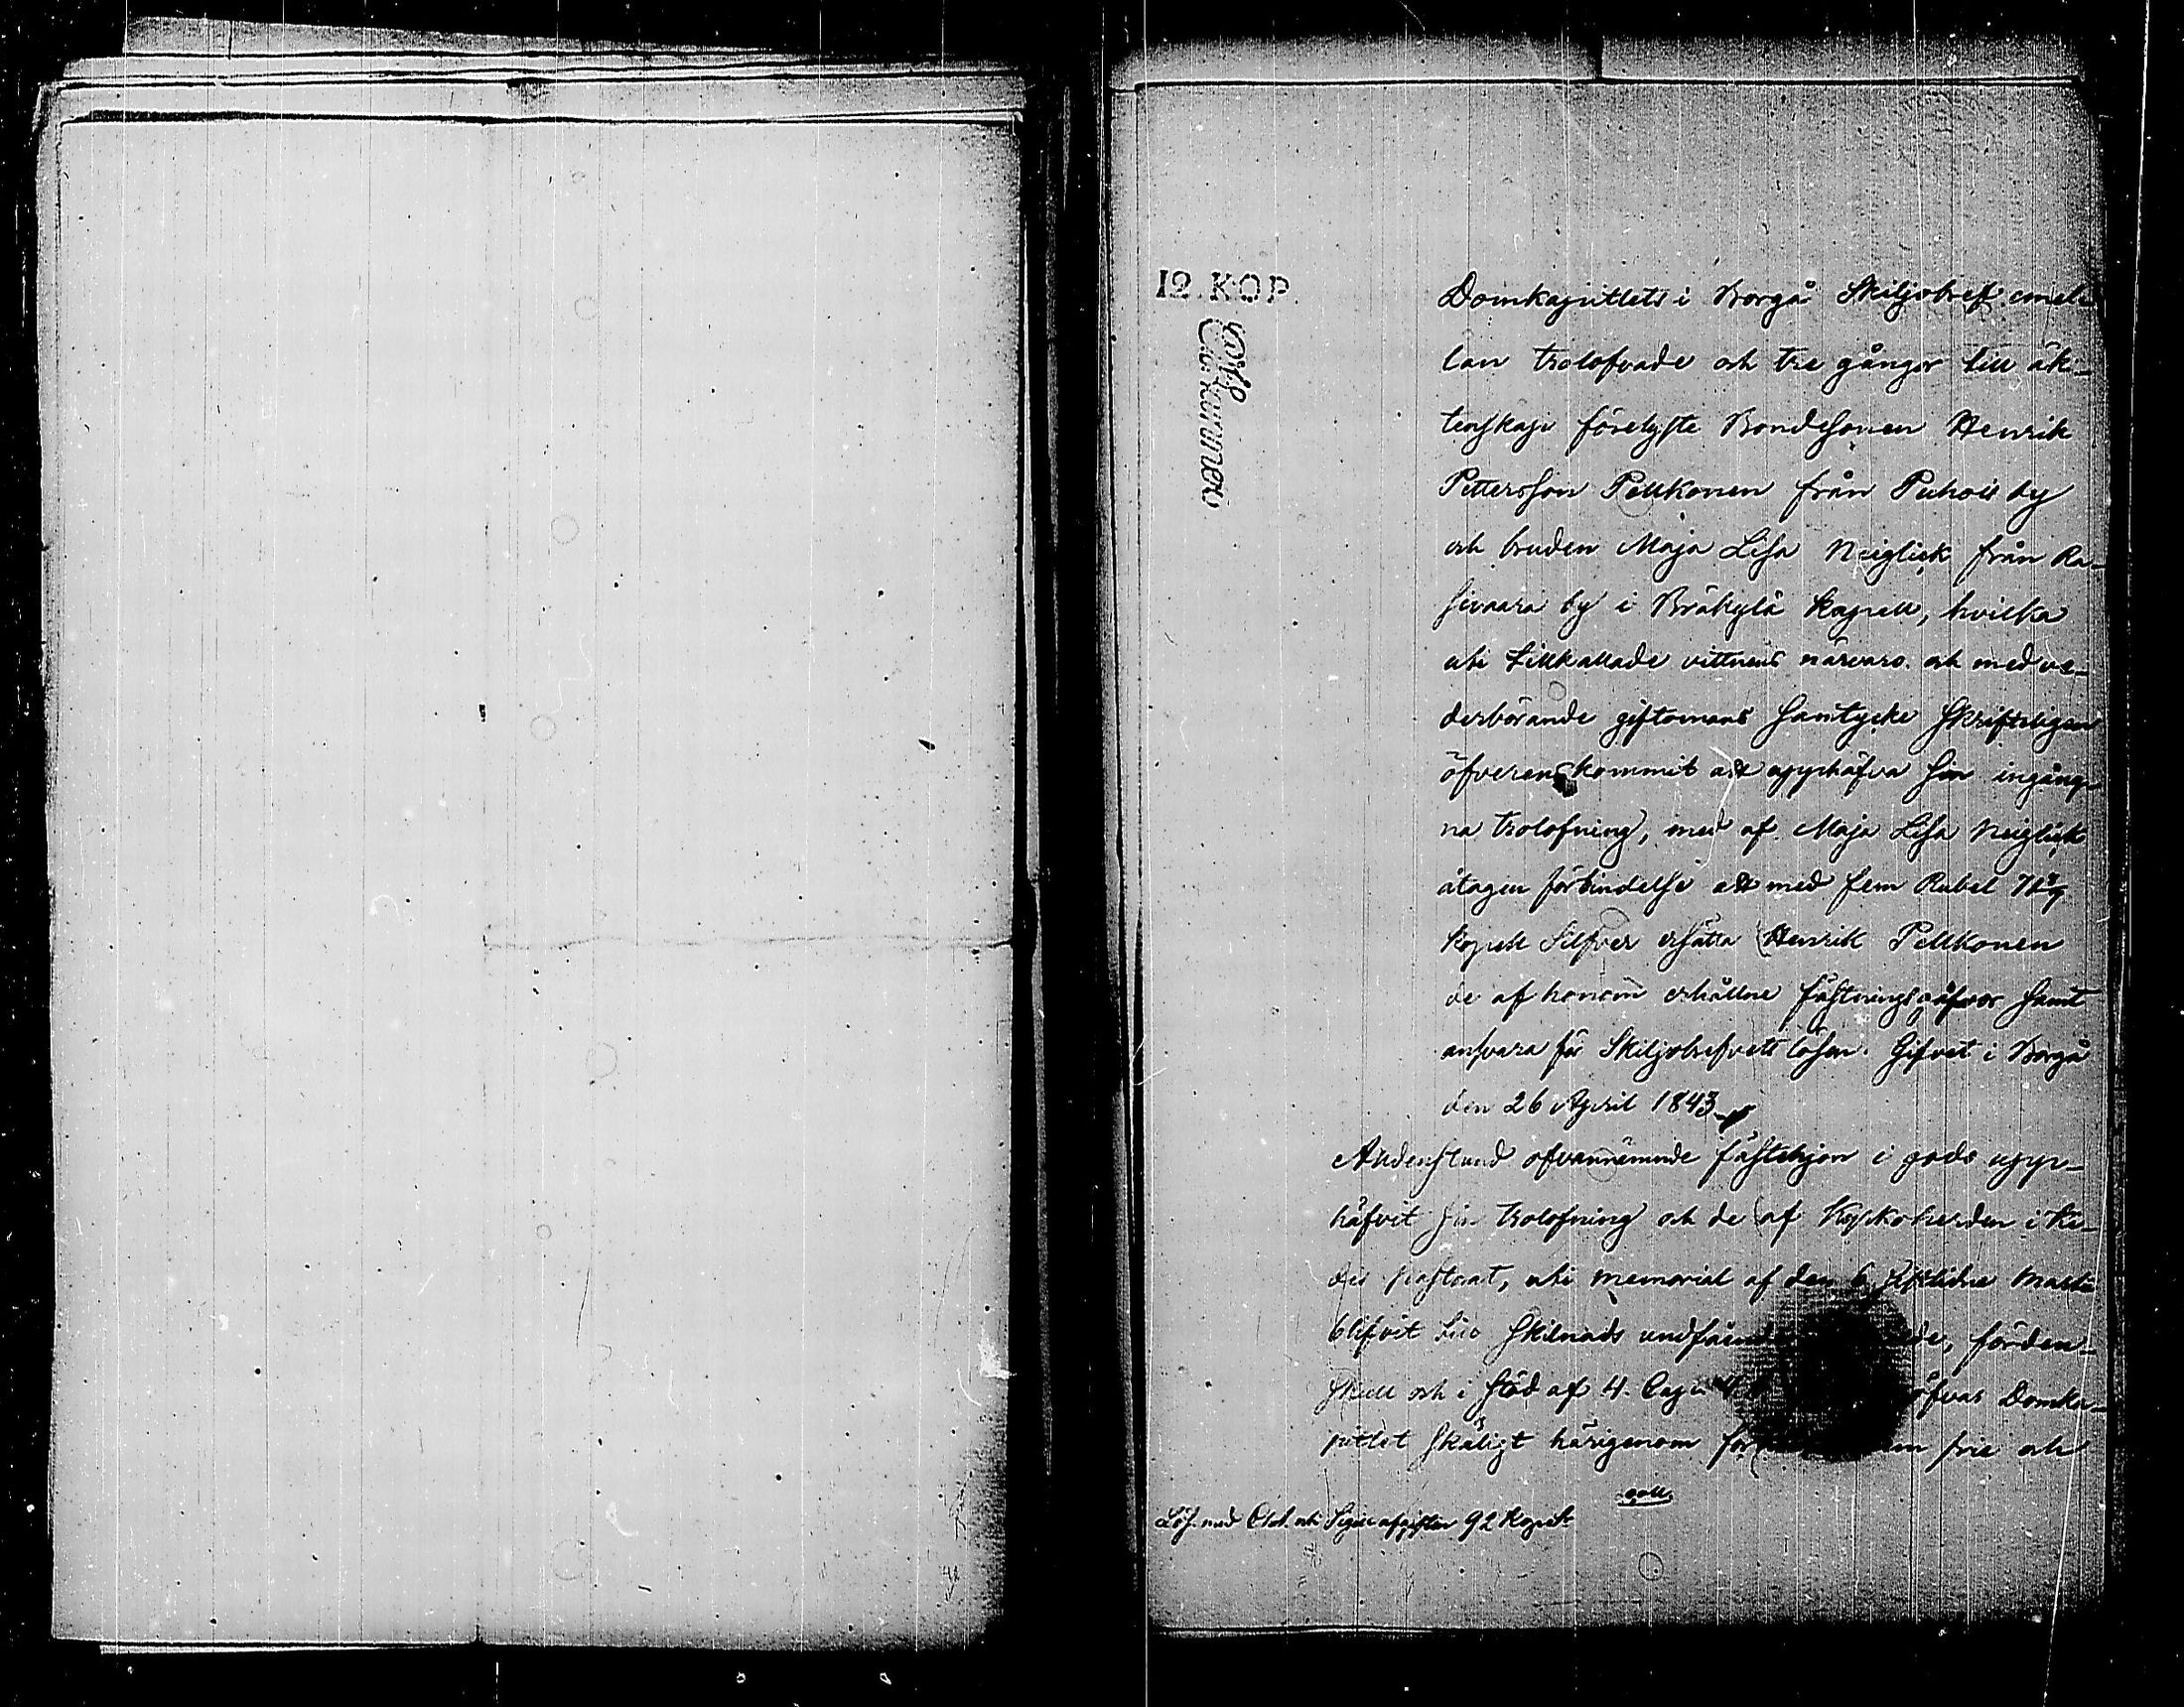 12. KOP.
Domkapitlets i Borgå Skiljobref emel-
lan trolofvade och tre gånger till äk-
tenskap förelyste Bondesonen Henrik
Pettersson Pellkonen från Puhois by
och bruden Maja Lisa Neiglick från Ra-
sivaara by i Bräkylä kapell, hvilka
uti tillkallade vittnens närvaro och med ve-
derbörande giftomans samtycke skriftligen
öfverenskommit att upphäfva sin ingång-
na trolofning, med af Maja Lisa Neiglick
åtagen förbindelse att med fem Rubel 71 3/7
kopek Silfver ersätta Henrik Pellkonen
de af honom erhållne fästningsgåfvor samt
ansvara för Skiljobrefvets lösen. Gifvet i Borgå
den 26 April 1843
Aldenstund ofvannämnde fästehjon i godo upp-
häfvit sin trolofning och de af Kyrkoherden i Ki-
des pastorat, uti memorial af den 6 sistlidne Martii
blifvit till skilnads undfående, förden-
skull och i stöd af 4. Cap. 4 öfvar Domka-
pitlet skäligt härigenom för frie och
Lös. med Chart. och Sigill afgifter 92 Kopek